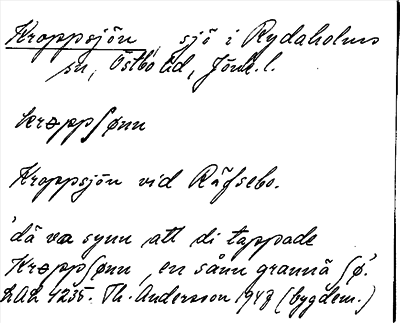 Kroppsjön, sjö i Rydaholms
sn, Östbo hd, Jönk. l.
krɔppʃønn
Kroppsjön vid Räfsebo.
'dä va synn att di tappade
Krɔppʃønn, en sånn grannä ʃø'.
LAL 4235. Th. Andersson 1948 (bygdem.)